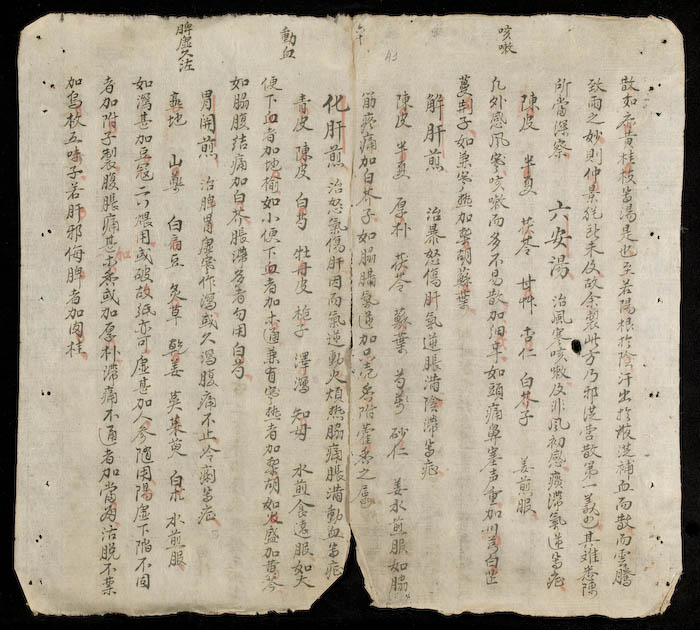 咳嗽
散如麻黃桂枝等湯是也至若陽根於陰汗出於液從補血而散而雲騰
致雨之妙則仲景從前未及故余製此方乃邪從營散第一義也其難悉陳
所當深察 六安湯 治風寒咳嗽及非風初感痰滯氣逆等症
陳皮 半夏 茯苓 甘艸 杏仁 白芥子 姜煎服
凡外感風寒咳嗽而多不易散加細辛如頭痛鼻塞声重加川芎白芷
蔓荊子如兼寒熱加柴胡蘇葉
解肝煎 治暴怒傷肝氣逆脹滿陰滯等症
陳皮 半夏 厚朴 茯苓 蘇葉 芍藥 砂仁 姜水煎服如脇
筋疼痛加白芥子如脇膈氣逆加只壳香附藿香之属
六十
43
動血
化肝煎 治怒氣傷肝因而氣逆動火煩熱脇痛脹滿動血等症
青皮 陳皮 白芍 牡丹皮 梔子 澤瀉 知母 水煎食遠服如大
便下血者加地榆如小便下血者加木通兼有寒熱者加柴胡如火盛加黃芩
如脇腹結痛加白芥脹滯多者勿用白芍
脾虛久泣
胃關煎 治脾胃虛寒作瀉或久瀉腹痛不止冷痢等症
熟地 山藥 白扁豆 炙草 乾姜 吳茱萸 白朮 水煎服
如瀉甚加豆蔻二介煨用或破故紙亦可虛甚加人參隨用陽虛下陷不固
者加附子製腹脹痛甚木香或加厚朴滯痛不通者加當歸滑脱不禁
加
加烏枚五味子若肝邪侮脾者加肉桂